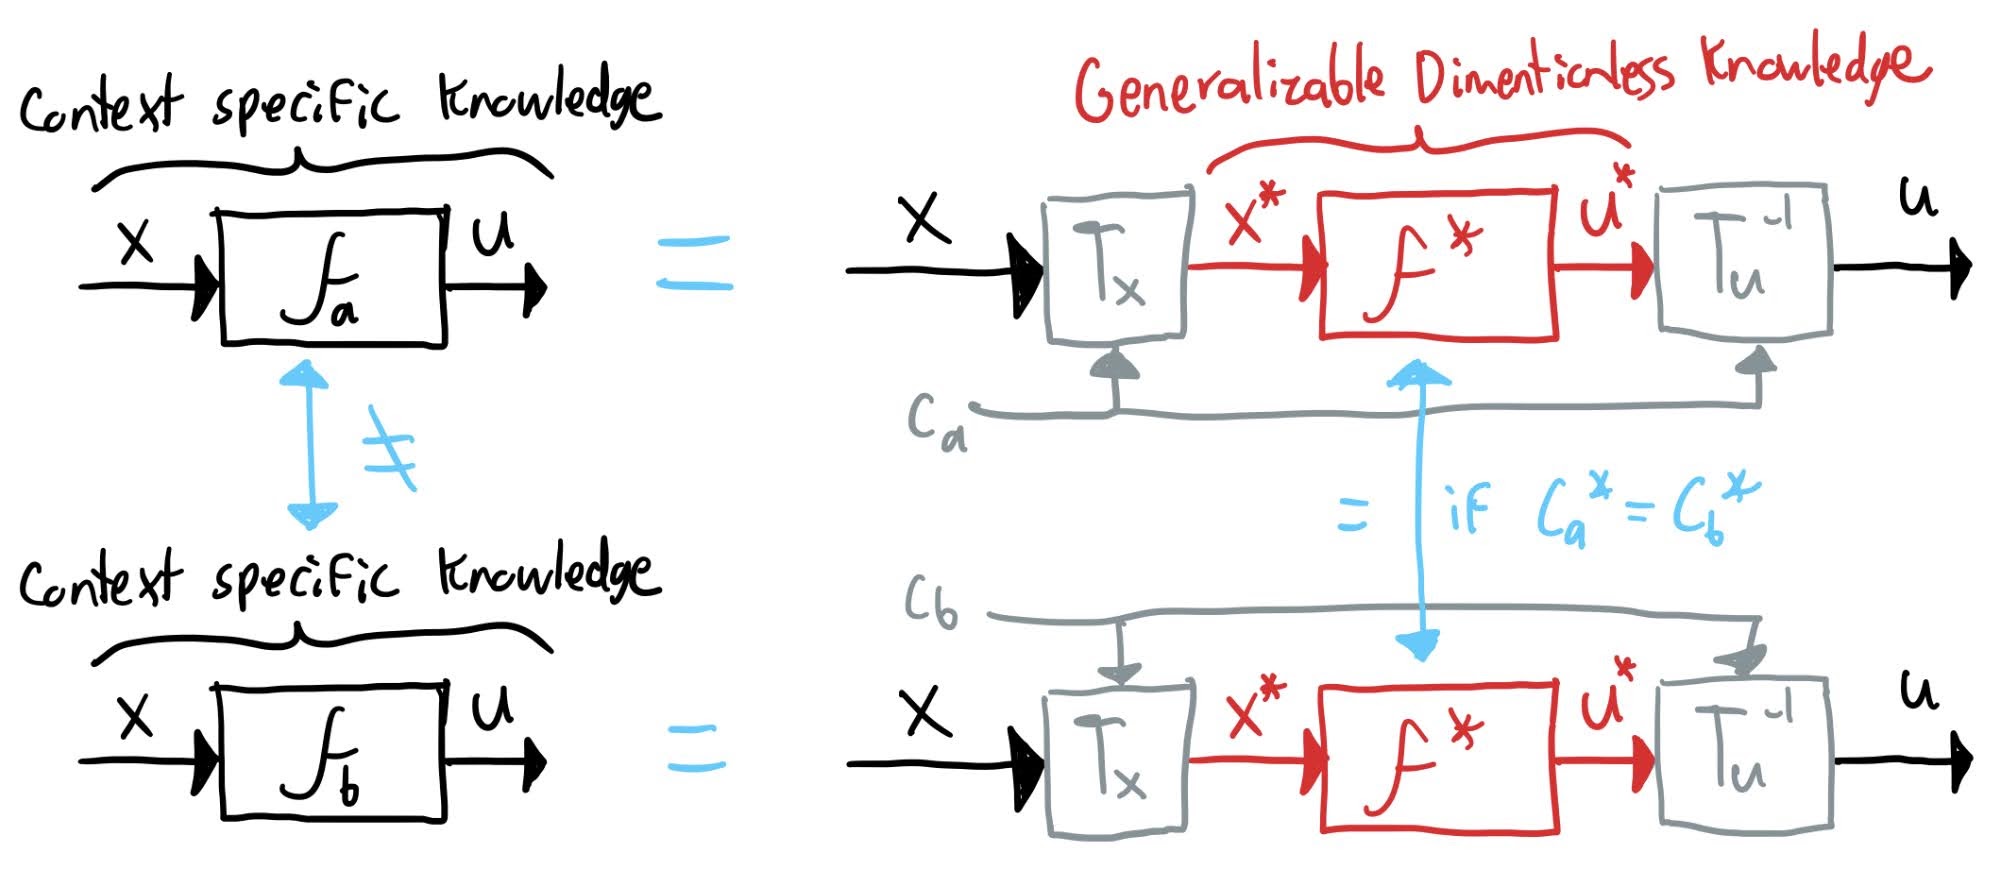 Context specific knowledge
Generalizable Dimentionless Knowledge
x f_a u = x T_x x* f* u* T_u^-1 u
≠
C_a
= if C_a* = C_b*
Context specific knowledge
C_b
x f_b u = x T_x x* f* u* T_u^-1 u